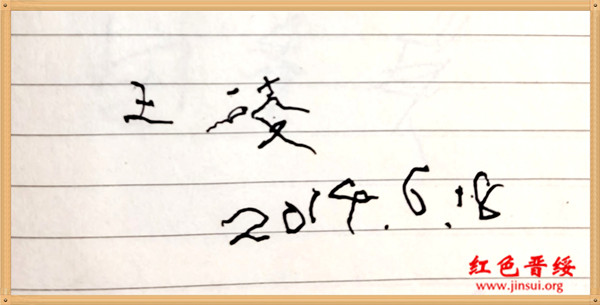 王凌
2014.6.18
红色晋绥
www.jinsui.org